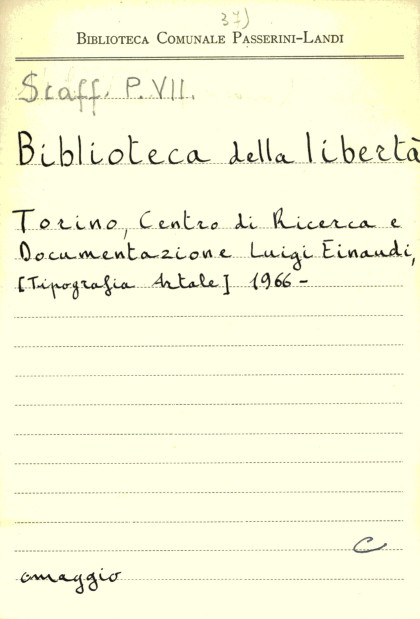 37)
BIBLIOTECA COMUNALE PASSERINI-LANDI
Scaff. P. VII.
Biblioteca della libertà
Torino, Centro di Ricerca e
Documentazione Luigi Einaudi,
[Tipografia Artale] 1966-
C
omaggio